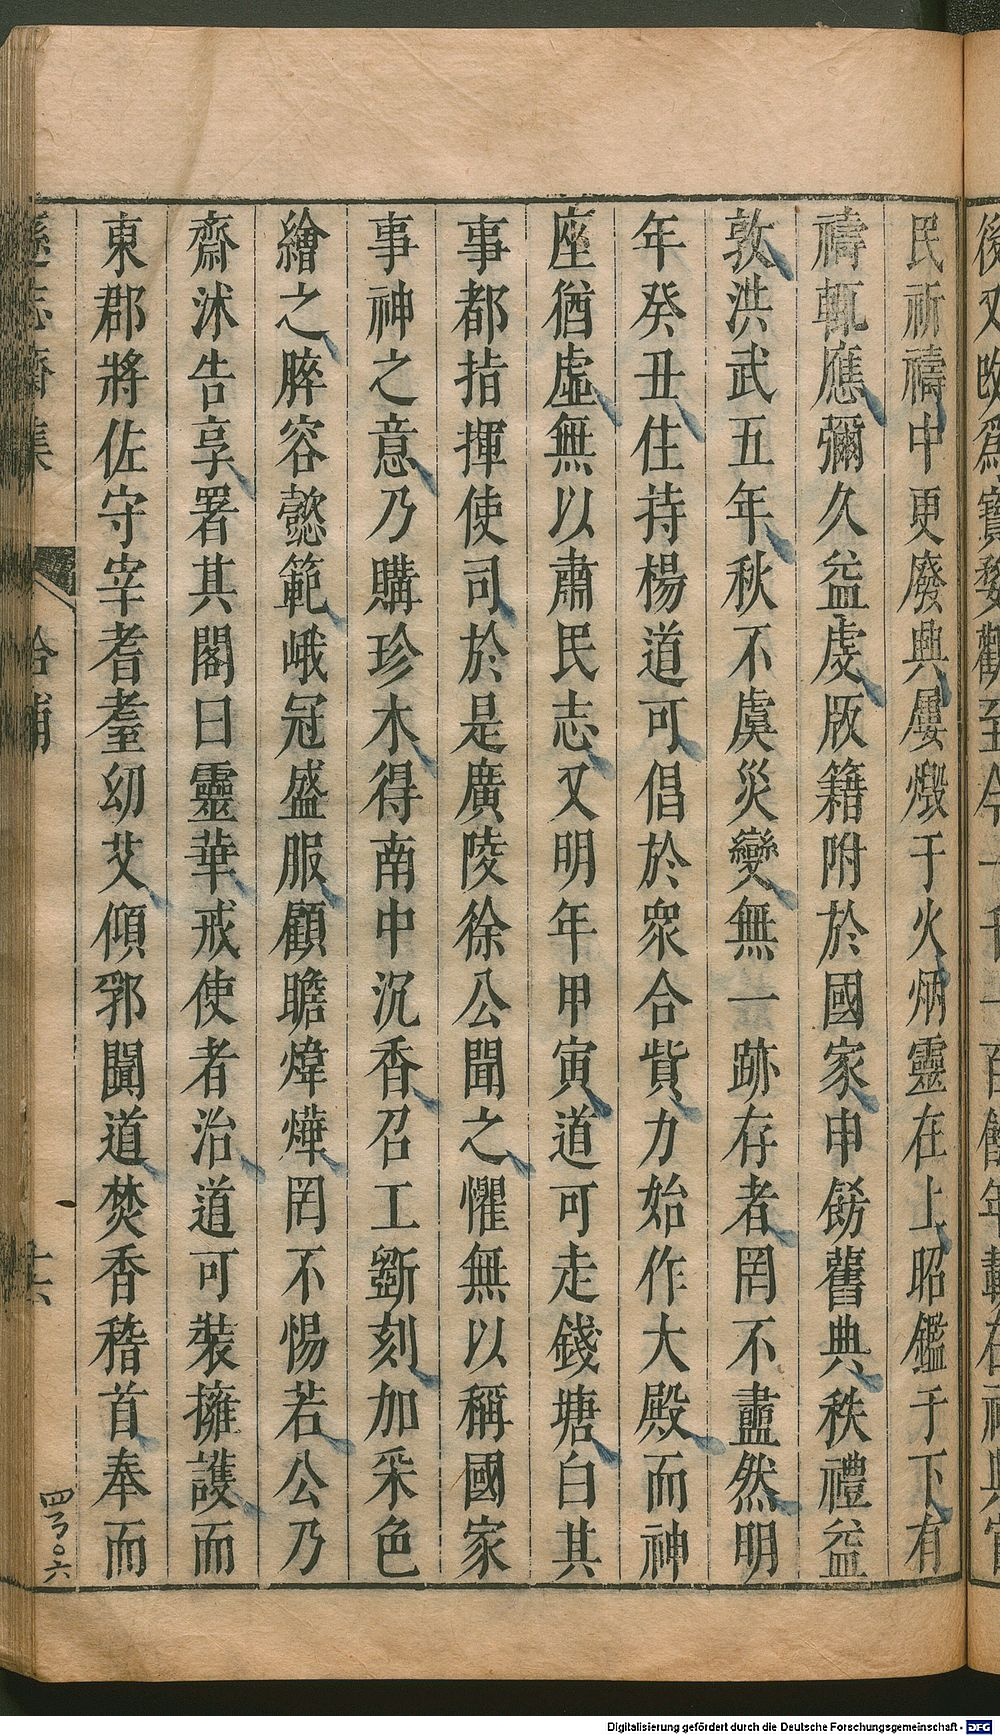 民祈禱中更廢興屢燬于火炳靈在上昭鑑于下有
禱輒應彌久益虔版籍附於國家申飭舊典秩禮益
敦洪武五年秋不虞災變無一跡存者罔不盡然明
年癸丑住持楊道可倡於眾合貲力始作大殿而神
座猶虛無以肅民志又明年甲寅道可走錢塘白其
事都指揮使司於是廣陵徐公聞之懼無以稱國家
事神之意乃購珍木得南中沉香召工斵刻加采色
繪之睟容懿範峨冠盛服顧瞻煒燁罔不惕若公乃
齋沐告享署其閣曰靈華戒使者治道可裝擁護而
東郡將佐守宰耆耋幼艾傾郛闐道焚香稽首奉而
遜志齋集
拾補
十六
四百〇六
Digitalisierung gefördert durch die Deutsche Forschungsgemeinschaft - DFG